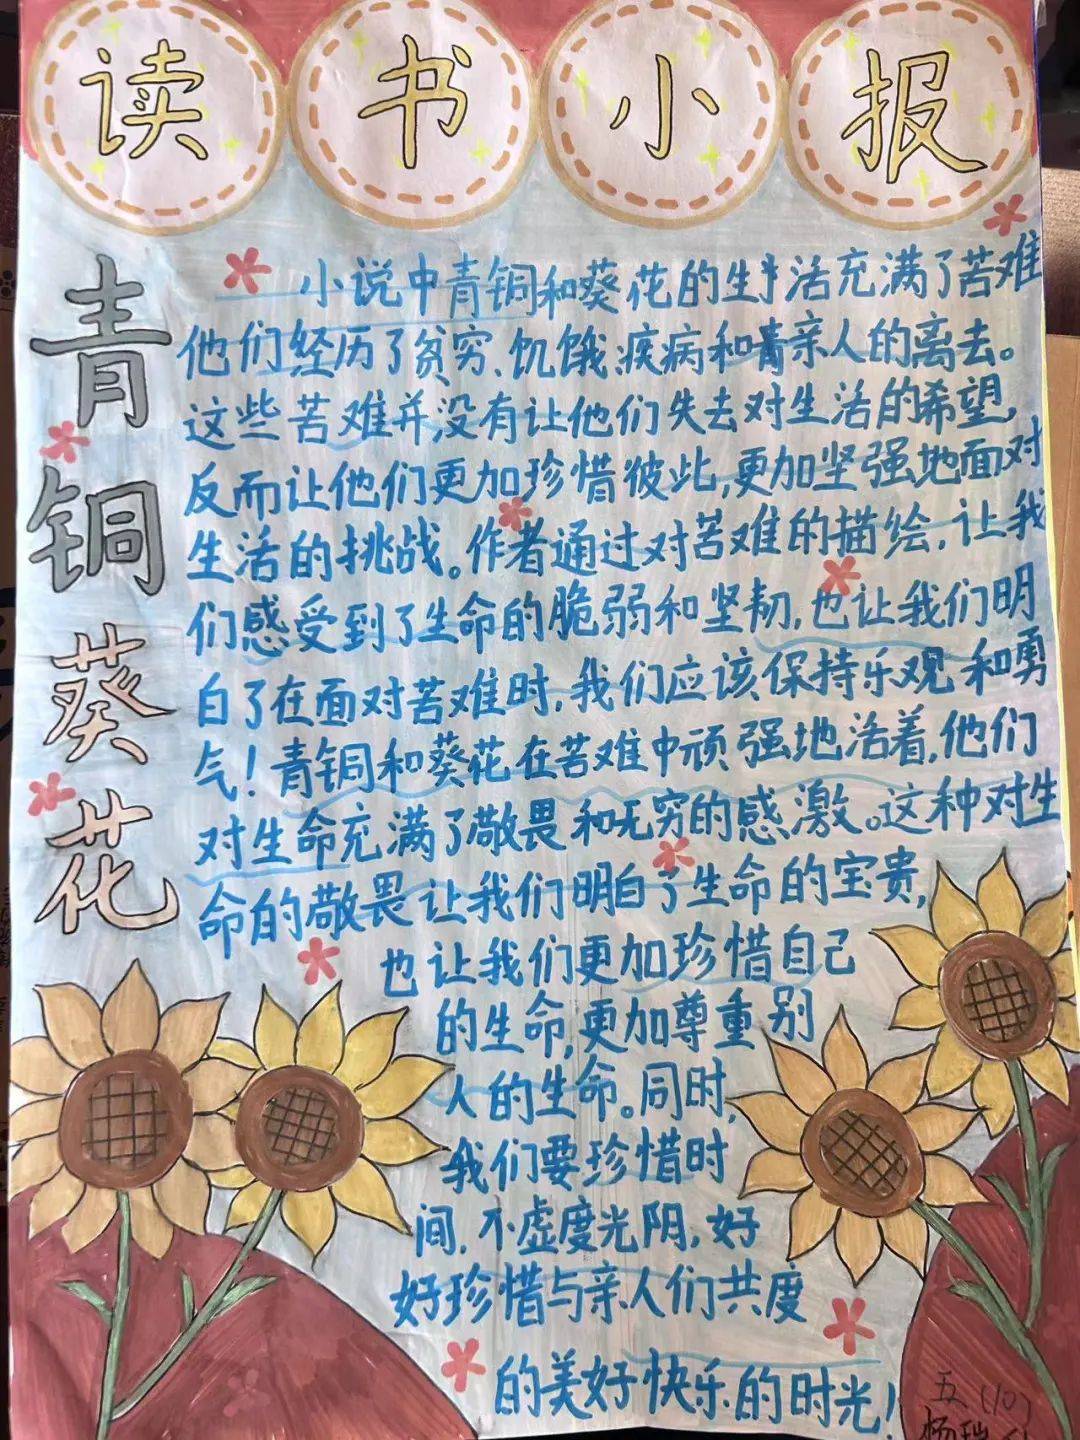 读书小报
青铜葵花
小说中青铜和葵花的生活充满了苦难
他们经历了贫穷、饥饿、疾病和亲人的离去。
这些苦难并没有让他们失去对生活的希望,
反而让他们更加珍惜彼此,更加坚强地面对
生活的挑战。作者通过对苦难的描绘,让我
们感受到了生命的脆弱和坚韧,也让我们明
白了在面对苦难时,我们应该保持乐观和勇
气!青铜和葵花在苦难中顽强地活着,他们
对生命充满了敬畏和无穷的感激。这种对生
命的敬畏让我们明白了生命的宝贵,
也让我们更加珍惜自己
的生命,更加尊重别
人的生命。同时,
我们要珍惜时
间,不虚度光阴,好
好珍惜与亲人们共度
的美好快乐的时光!
五(10)
杨